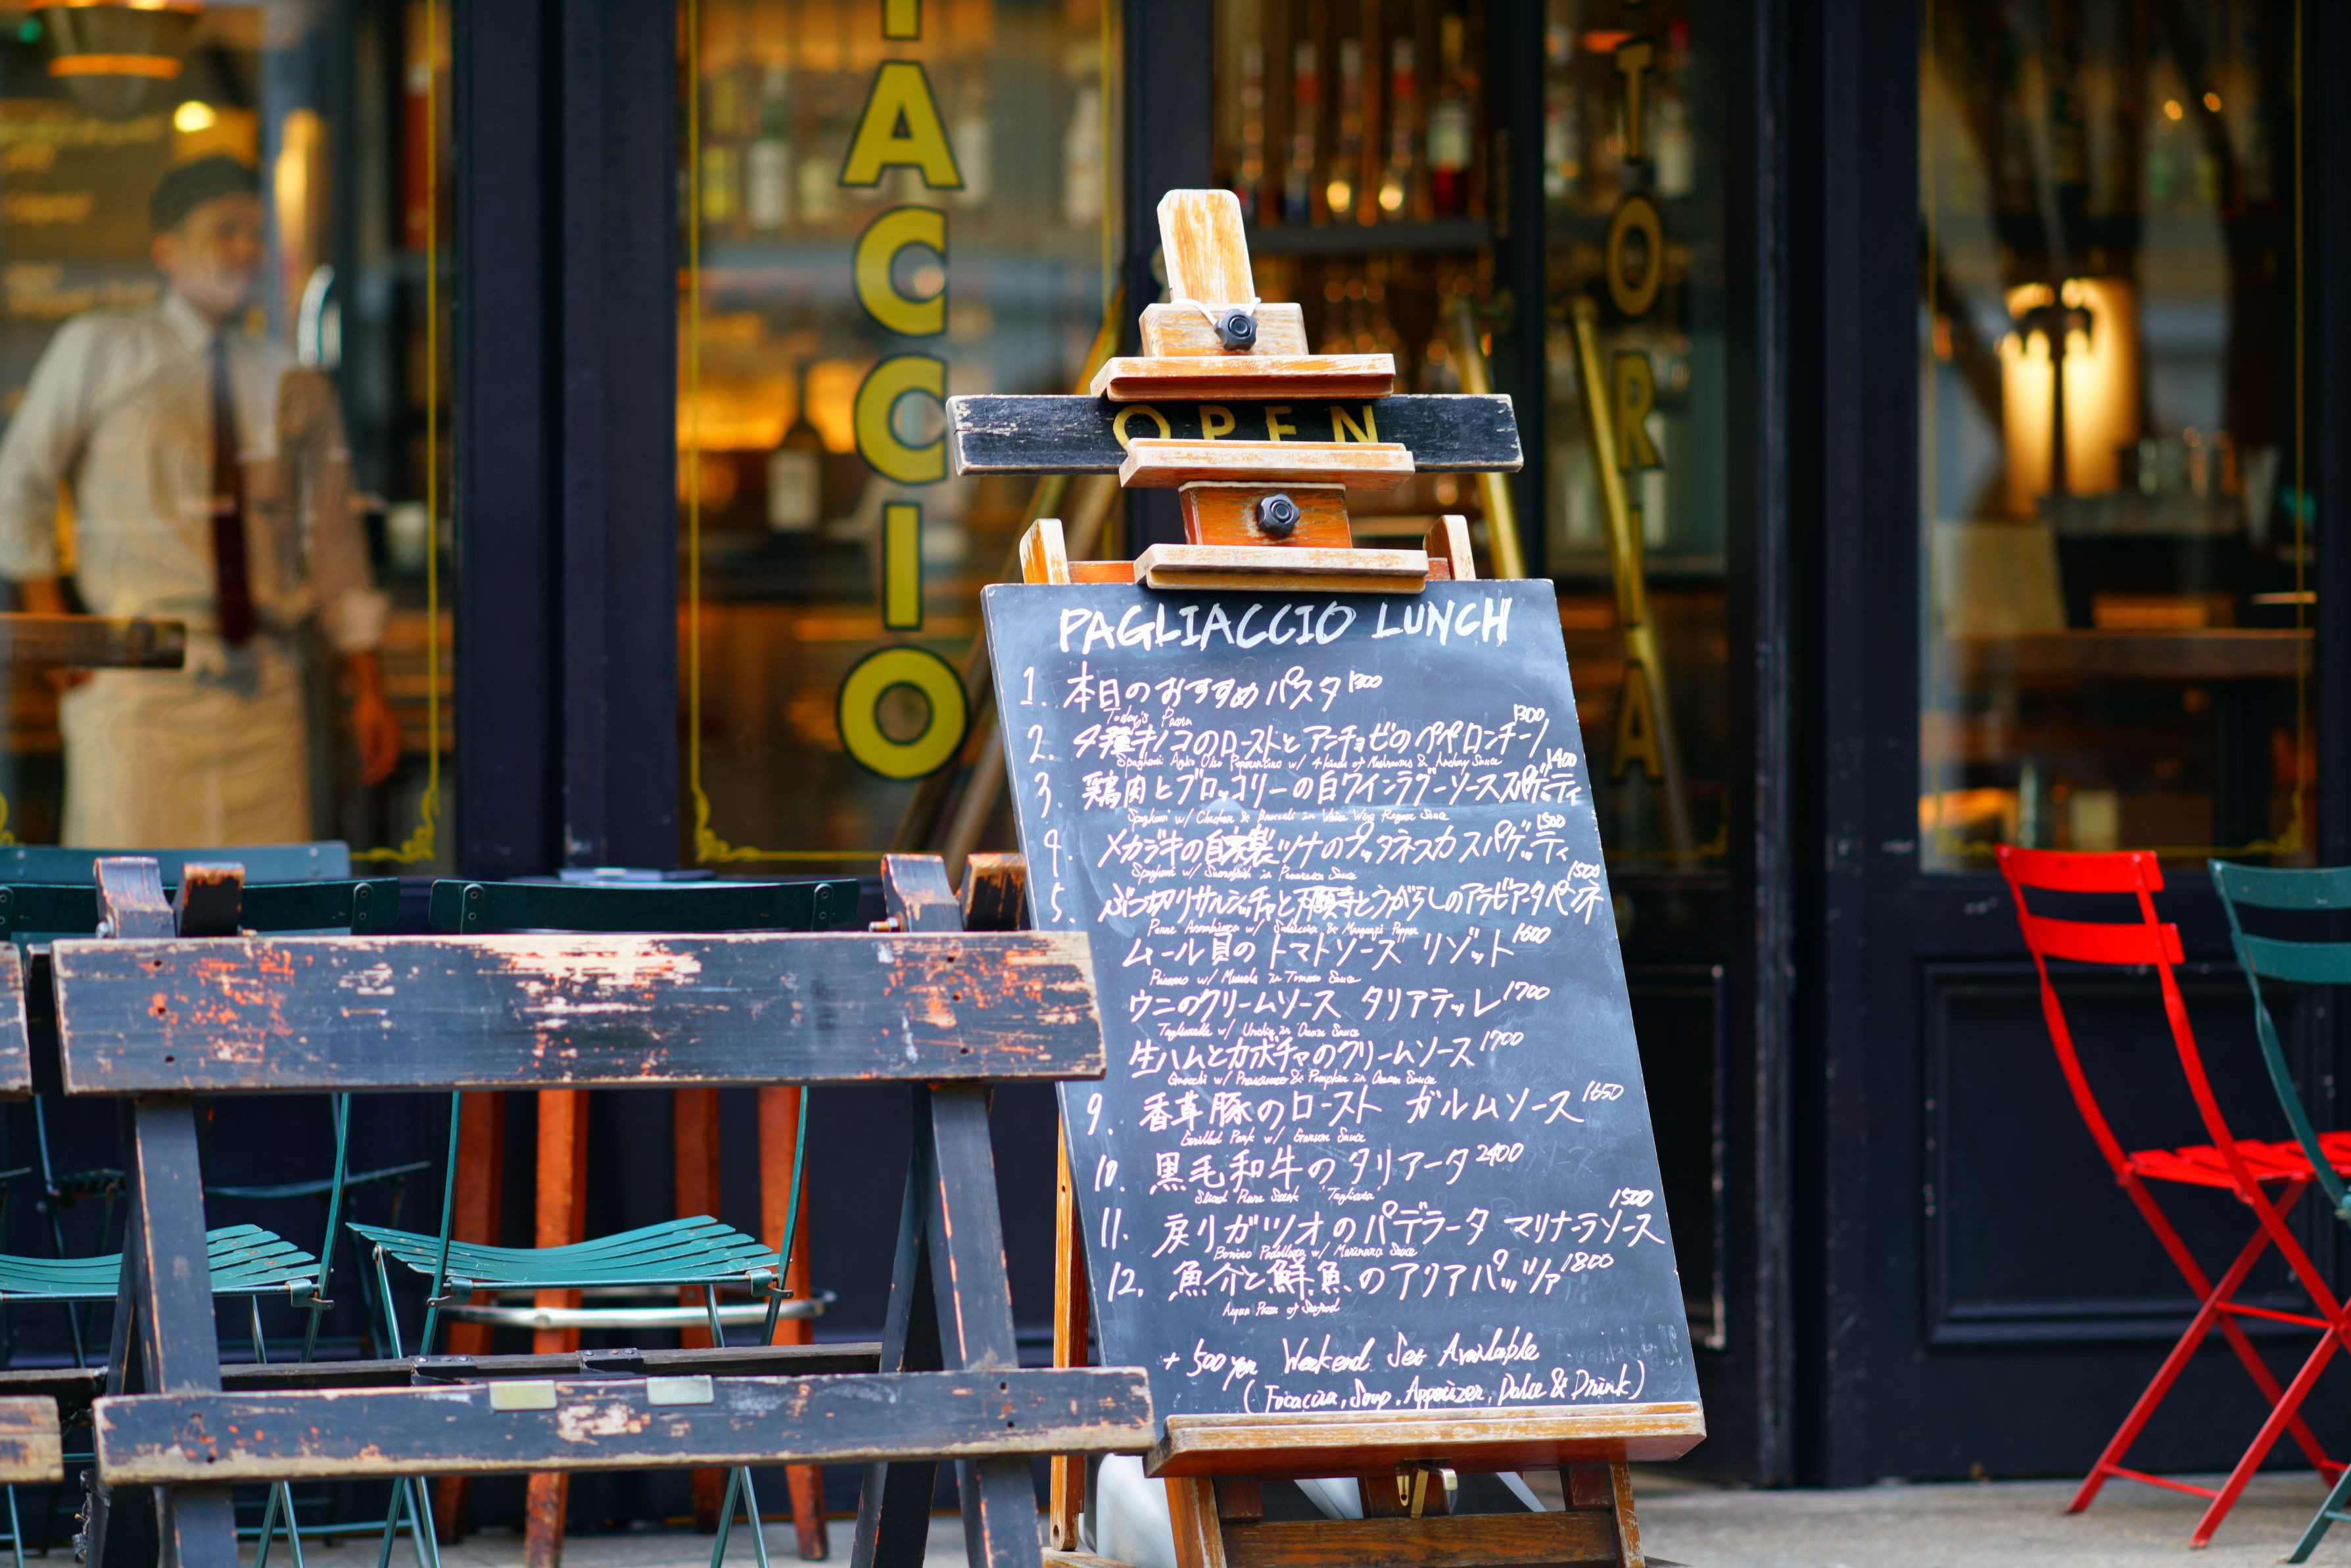 IACCIO
TORIA
OPEN
PAGLIACCIO LUNCH
1. 本日のおすすめパスタ 1300
Today's Pasta
2. 4種キノコのローストとアンチョビのペペロンチーノ 1300
Spaghetti Aglio Olio Peperoncino w/ 4 kinds of Mushrooms & Anchovy Sauce
3. 鶏肉とブロッコリーの白ワインラグーソーススパゲッティ 1400
Spaghetti w/ Chicken & Broccoli in White Wine Ragout Sauce
4. メカジキの自家製ツナのプッタネスカスパゲッティ 1500
Spaghetti w/ Swordfish in Sauce
5. ぶつ切りサルシッチャと万願寺とうがらしのアラビアータペンネ 1500
Penne Arrabbiata w/ Salsiccia & Manganji Pepper
ムール貝のトマトソース リゾット 1600
w/ Mussels in Tomato Sauce
ウニのクリームソース タリアテッレ 1700
Tagliatelle w/ Urchin in Cream Sauce
生ハムとカボチャのクリームソース 1700
Gnocchi w/ Prosciutto & Pumpkin in Cream Sauce
9. 香草豚のロースト ガルムソース 1650
Grilled Pork w/ Sauce
10. 黒毛和牛のタリアータ 2400
Sliced Steak "Tagliata"
11. 戻りガツオのパデラータ マリナーラソース 1500
Bonito Padellata w/ Marinara Sauce
12. 魚介と鮮魚のアクアパッツァ 1800
Acqua Pazza of Seafood
+ 500 yen Weekend Set Available
(Focaccia, Soup, Appetizer, Dolce & Drink)